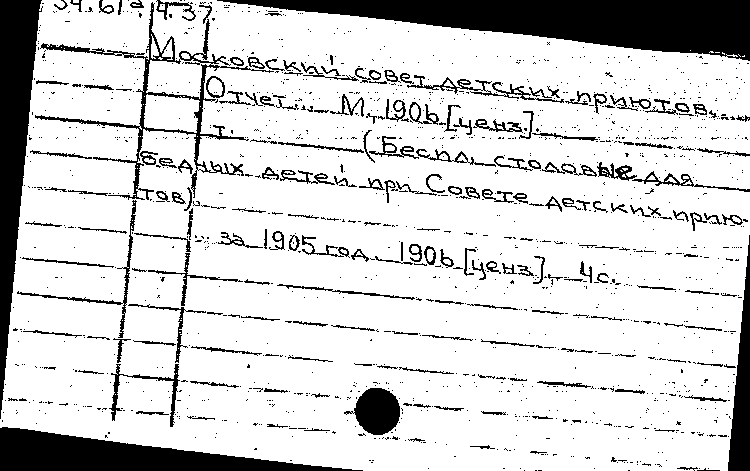 34.61 4.37.
Московский совет детских приютов.
Отчет... М., 1906 [ценз.].
т. (Беспл. столовые для
бедных детей при Совете детских прию-
тов).
... за 1905 год. 1906 [ценз]. 4с.